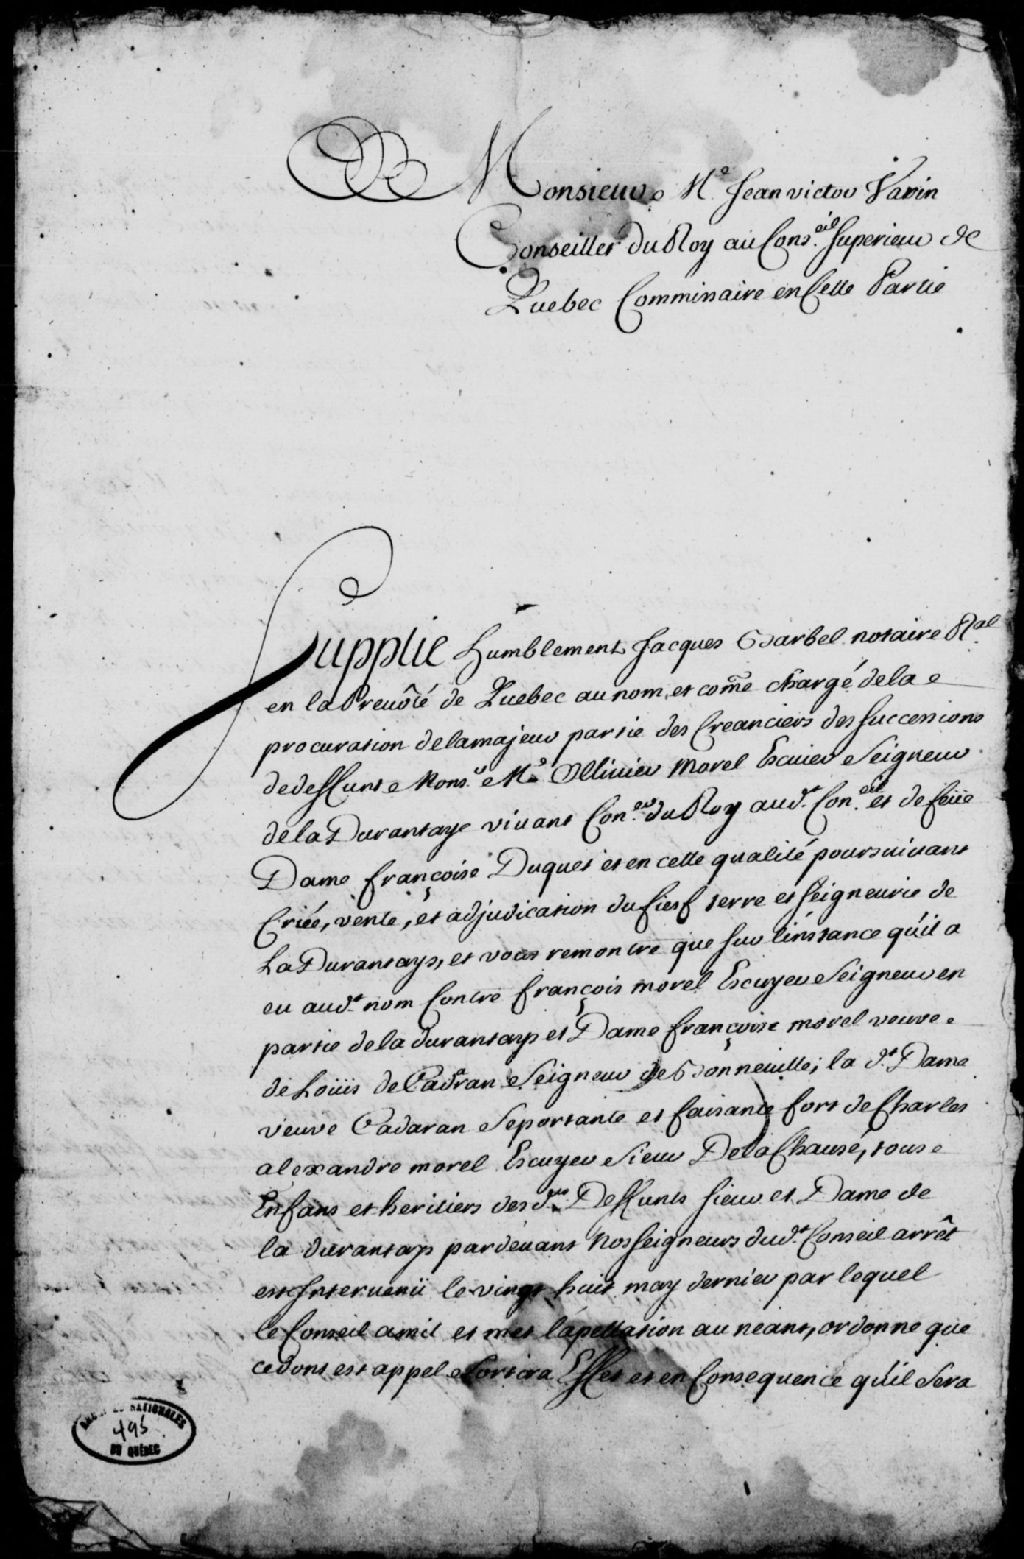 Monsieur Me Jean victor Varin
Conseiller du Roy au Cons.eil Superieur de
Quebec Commissaire en Cette Partie
Supplie humblement Jacques Barbel notaire R.al
en la Prevôté de Quebec au nom, et come chargé de la
procuration de la majeur partie des Creanciers des Successions
de deffunt Mons.r Me Ollivier Morel Escuier Seigneur
de la Durantaye vivant Con.er du Roy aud.t Con.eil et de feüe
Dame françoise Duquet et en cette qualité poursuivant
Criée, vente, et adjudication du fief terre et Seigneurie de
La Durantaye, et vous remontre que sur l'instance qu'il a
eu aud.t nom Contre françois morel Escuyer Seigneur en
partie de la durantaye et Dame françoise morel veuve
de Loüis de Cadran Seigneur de Bonneville; la d.t Dame
veuve Cadaran se portante et faisante fort de Charles
alexandre morel Escuyer Sieur De la Chausé, tous
Enfans et heritiers desd. Deffunts Sieur et Dame de
la durantaye pardevant Nosseigneurs dud.t Conseil arrêt
est Intervenü le vingt huit may dernier par lequel
le Conseil a mit et met l'apellation au neant, ordonne que
ce dont est appel Sortira Effet et en Consequence qu'il Sera
ARCHIVES NATIONALES
495
DU QUÉBEC